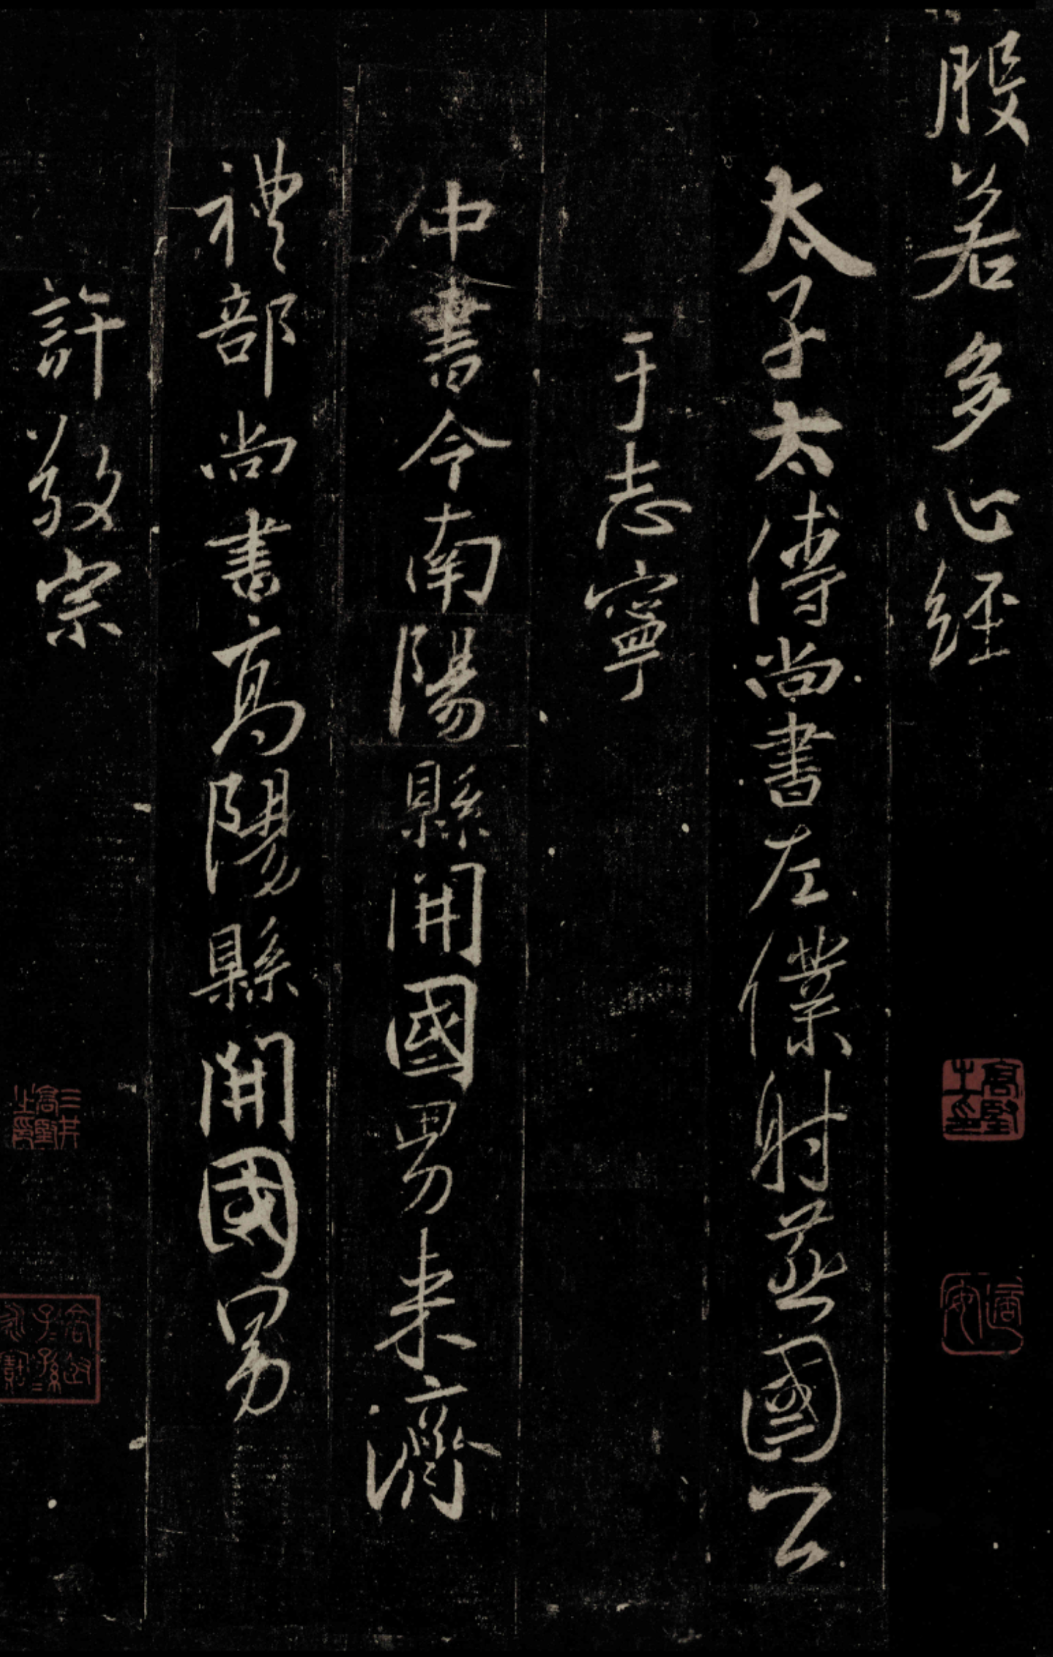 般若多心經
太子太傅尚書左僕射燕國公
于志寧
中書令南陽縣開國男来濟
禮部尚書高陽縣開國男
許敬宗
三井高堅之印